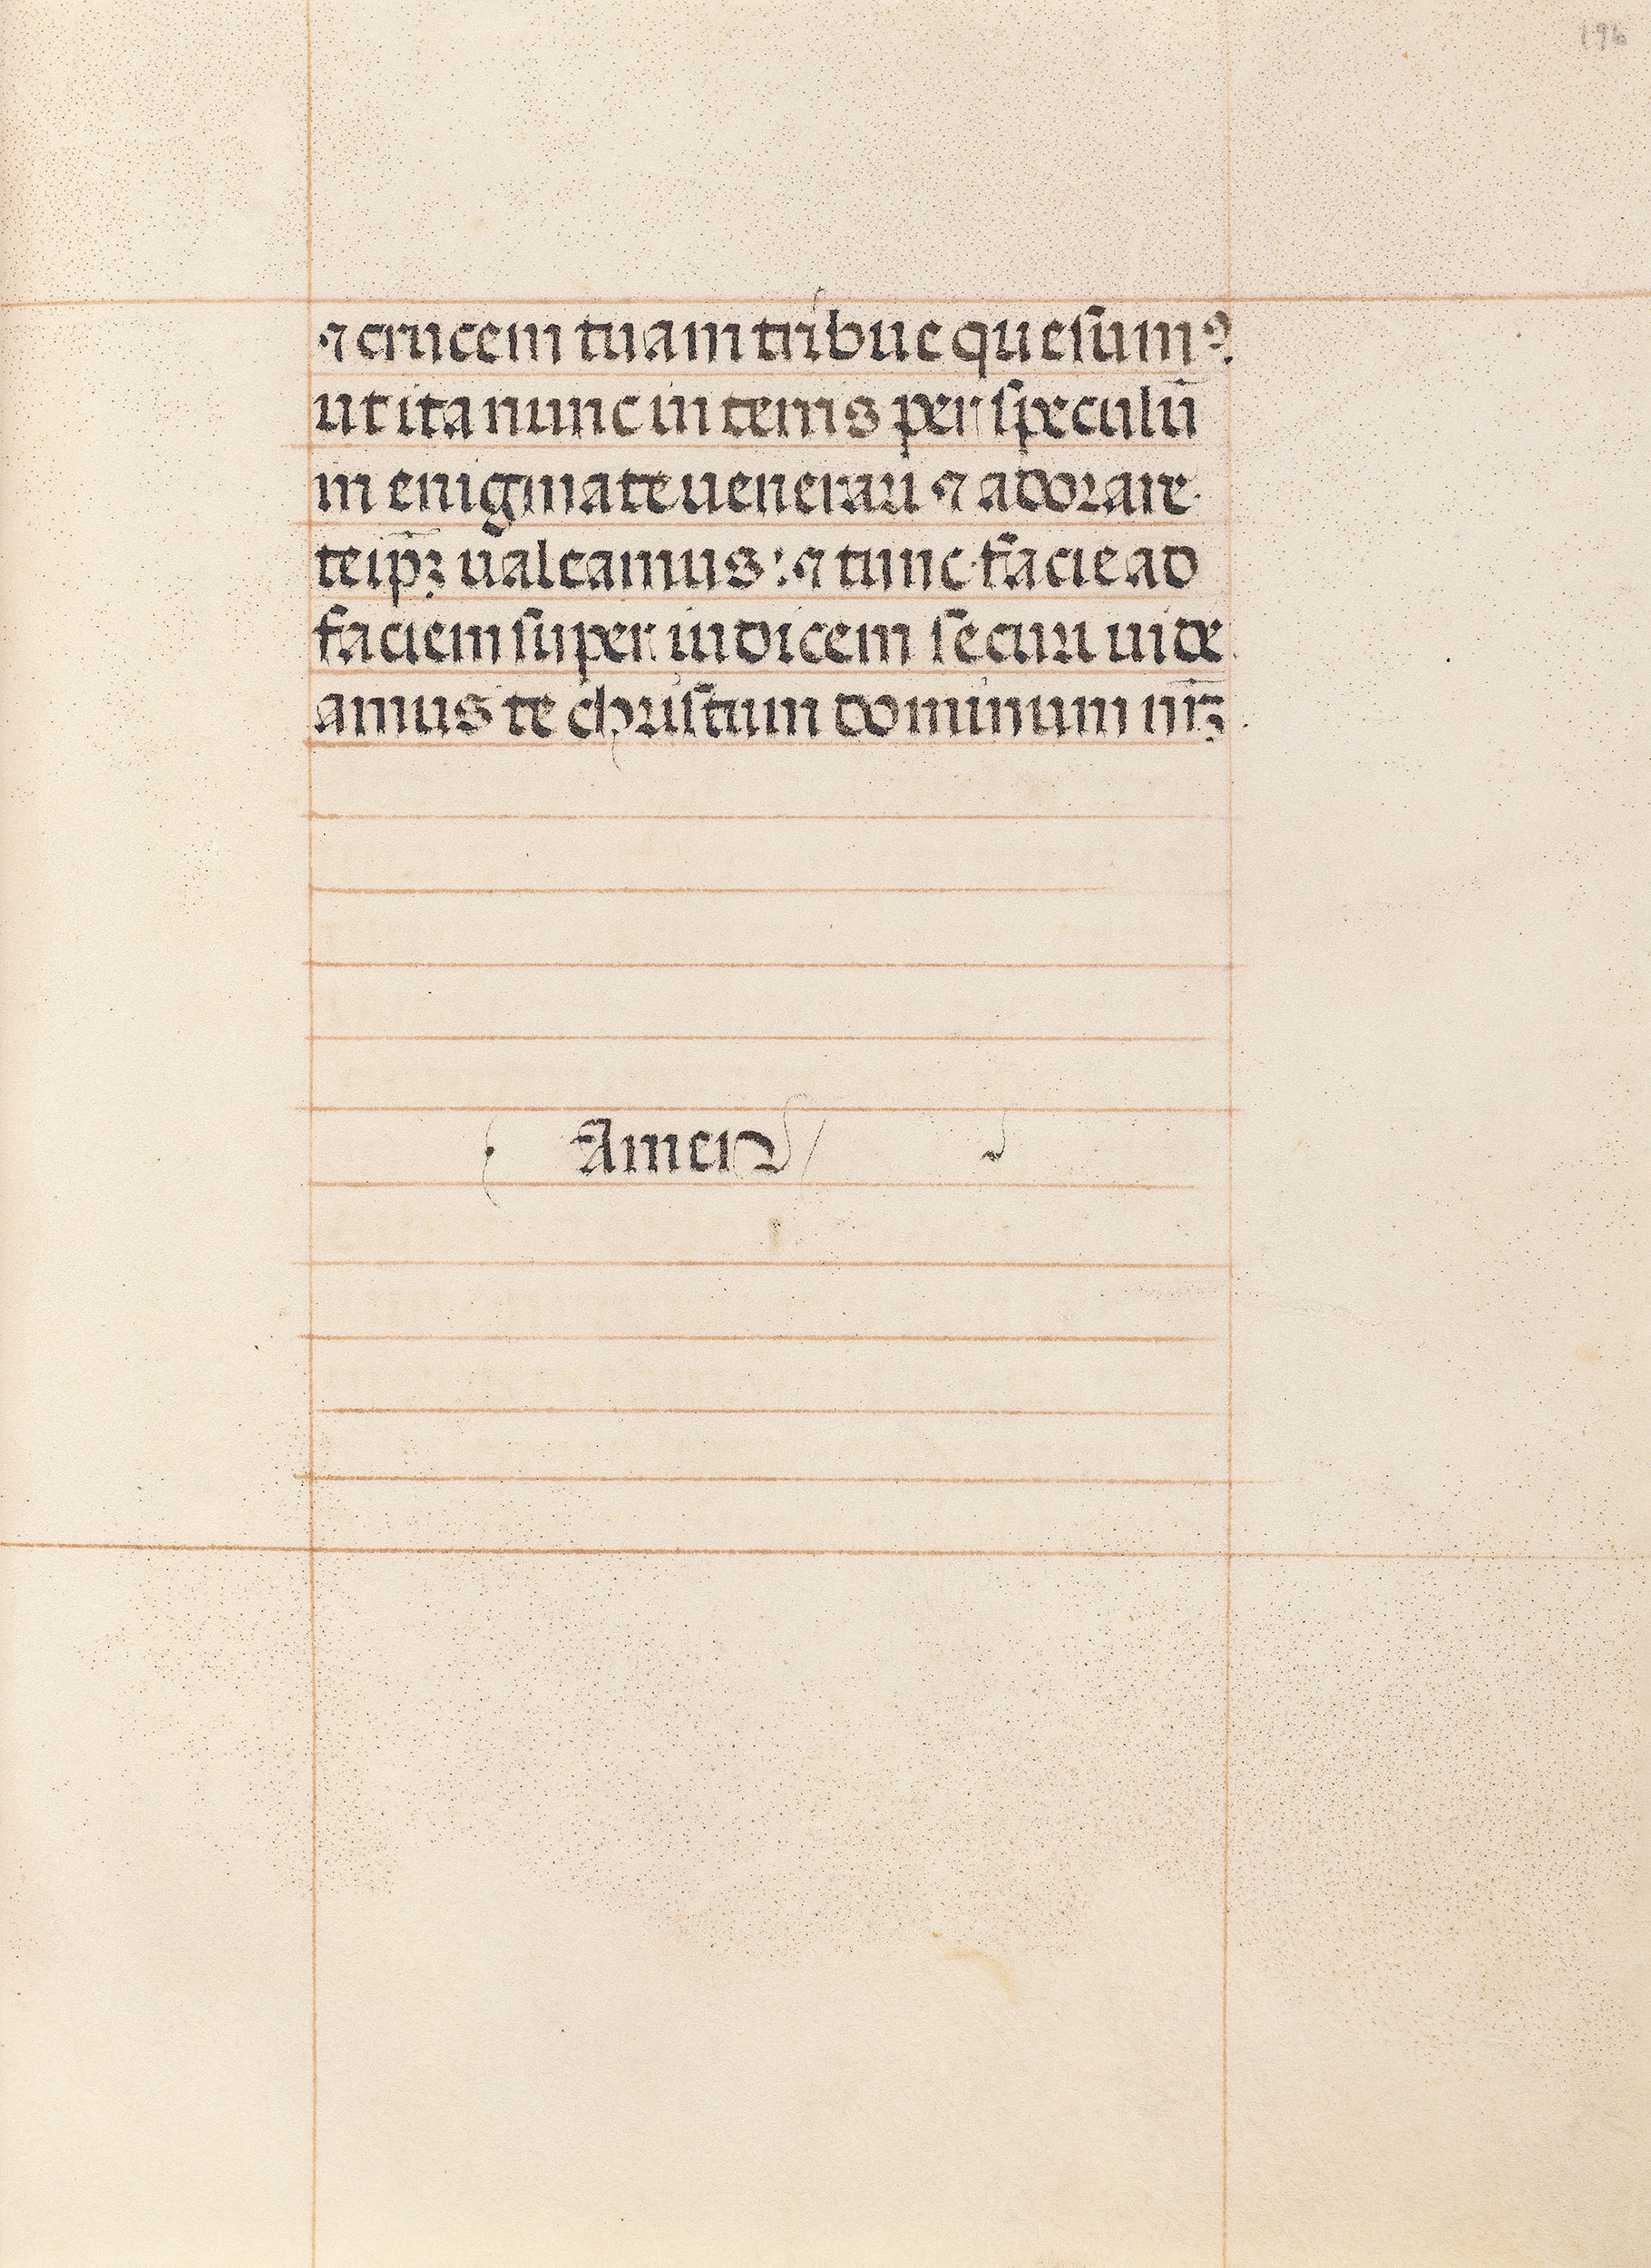 196
⁊ crucem tuam tribue quesumꝰ.
ut ita nunc in terris per speculū
in enigmate uenerari ⁊ adorare
teip̄ꝫ ualeamus: ⁊ tunc facie ad
faciem super iudicem securi uide
amus te christum dominum nr̄ꝫ.
Amen